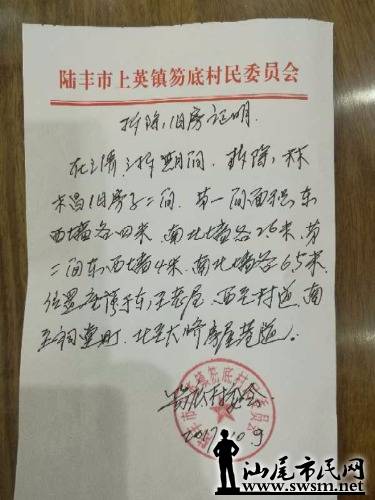 陆丰市上英镇笏底村民委员会
拆除旧房证明.
在拆期间.拆除,林
昌旧房子二间.第一间面积东
西墙各四米.南北墙各26米.第
二间东西墙4米.南北墙各65米
位置座落于东至老屋.西至村道.南
至祠堂前.北至大峰房屋巷道.
笏底村委会.
2017.10.9
陆丰市上英镇笏底村民委员会
汕尾市民网
www.swsm.net